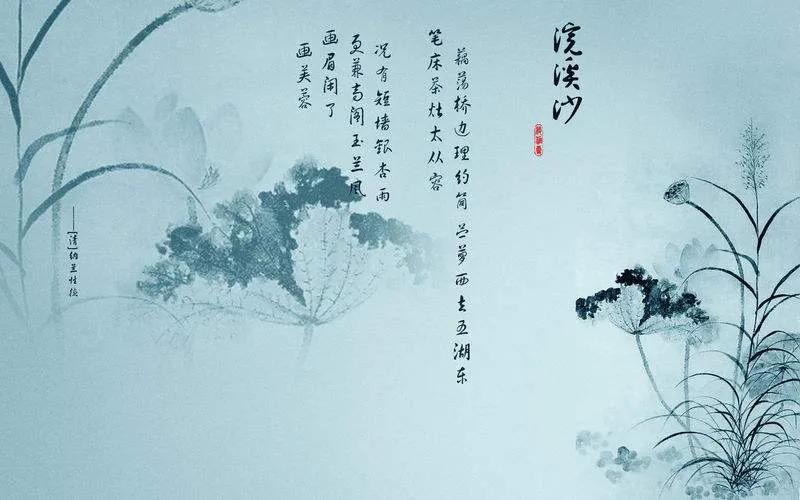 浣溪沙
藕荡桥边理钓筒 苎萝西去五湖东
笔床茶灶太从容
况有短墙银杏雨
更兼高阁玉兰风
画眉闲了
画芙蓉
——[清]纳兰性德